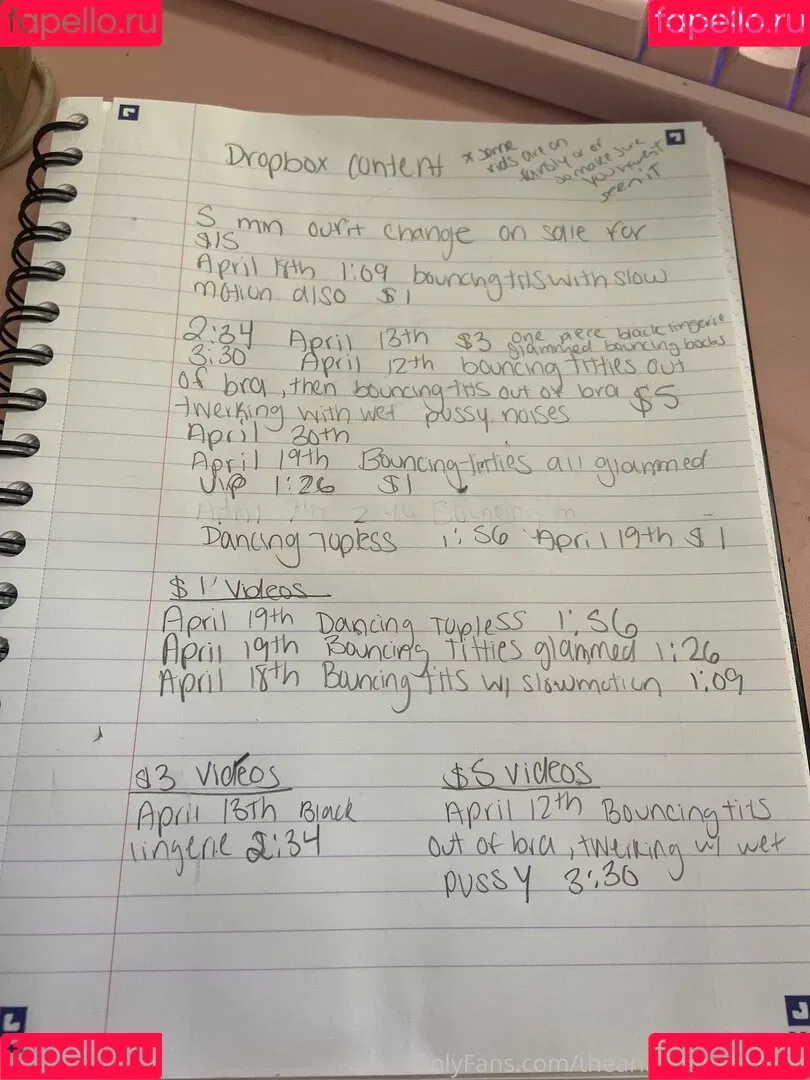 fapello.ru
fapello.ru
Dropbox content
* some
vids are on
so make sure
you haven't
seen it
5 min outfit change on sale for
$15
April 18th 1:09 bouncing tits with slow
motion also $1
2:34 April 13th $3 one piece black lingerie
glammed bouncing boobs
3:30 April 12th bouncing titties out
of bra, then bouncing tits out of bra $5
twerking with wet pussy noises
April 30th
April 19th Bouncing titties all glammed
up 1:26 $1
Dancing topless 1:56 April 19th $1
$1 Videos
April 19th Dancing topless 1:56
April 19th Bouncing titties glammed 1:26
April 18th Bouncing tits w/ slowmotion 1:09
$3 Videos
April 13th Black
lingerie 2:34
$5 videos
April 12th Bouncing tits
out of bra, twerking w/ wet
pussy 3:30
fapello.ru
OnlyFans.com/thear
fapello.ru